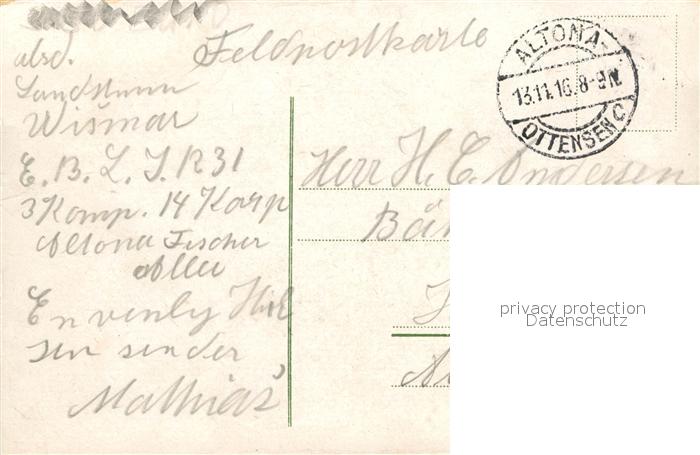 Feldpostkarte
ALTONA-
13.11.16. 8-9N.
OTTENSEN C
absd.
Landsturm
Wismar
E. B. L. I. R 31
3 Komp. 14 Korp
Altona Fischer
Allee
En venlig Hil
sen sender
Mathias
Herr H. C. Andersen
privacy protection
Datenschutz